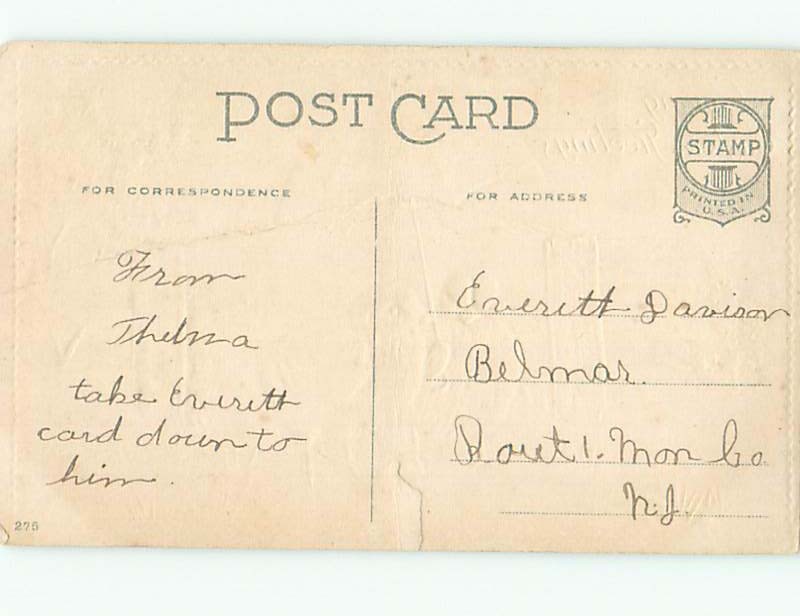 POST CARD
STAMP
PRINTED IN
U.S.A.
FOR CORRESPONDENCE
FOR ADDRESS
From
Thelma
take Everett
card down to
him.
Everett Davison
Belmar.
Rout 1. Mon Co.
N.J.
275